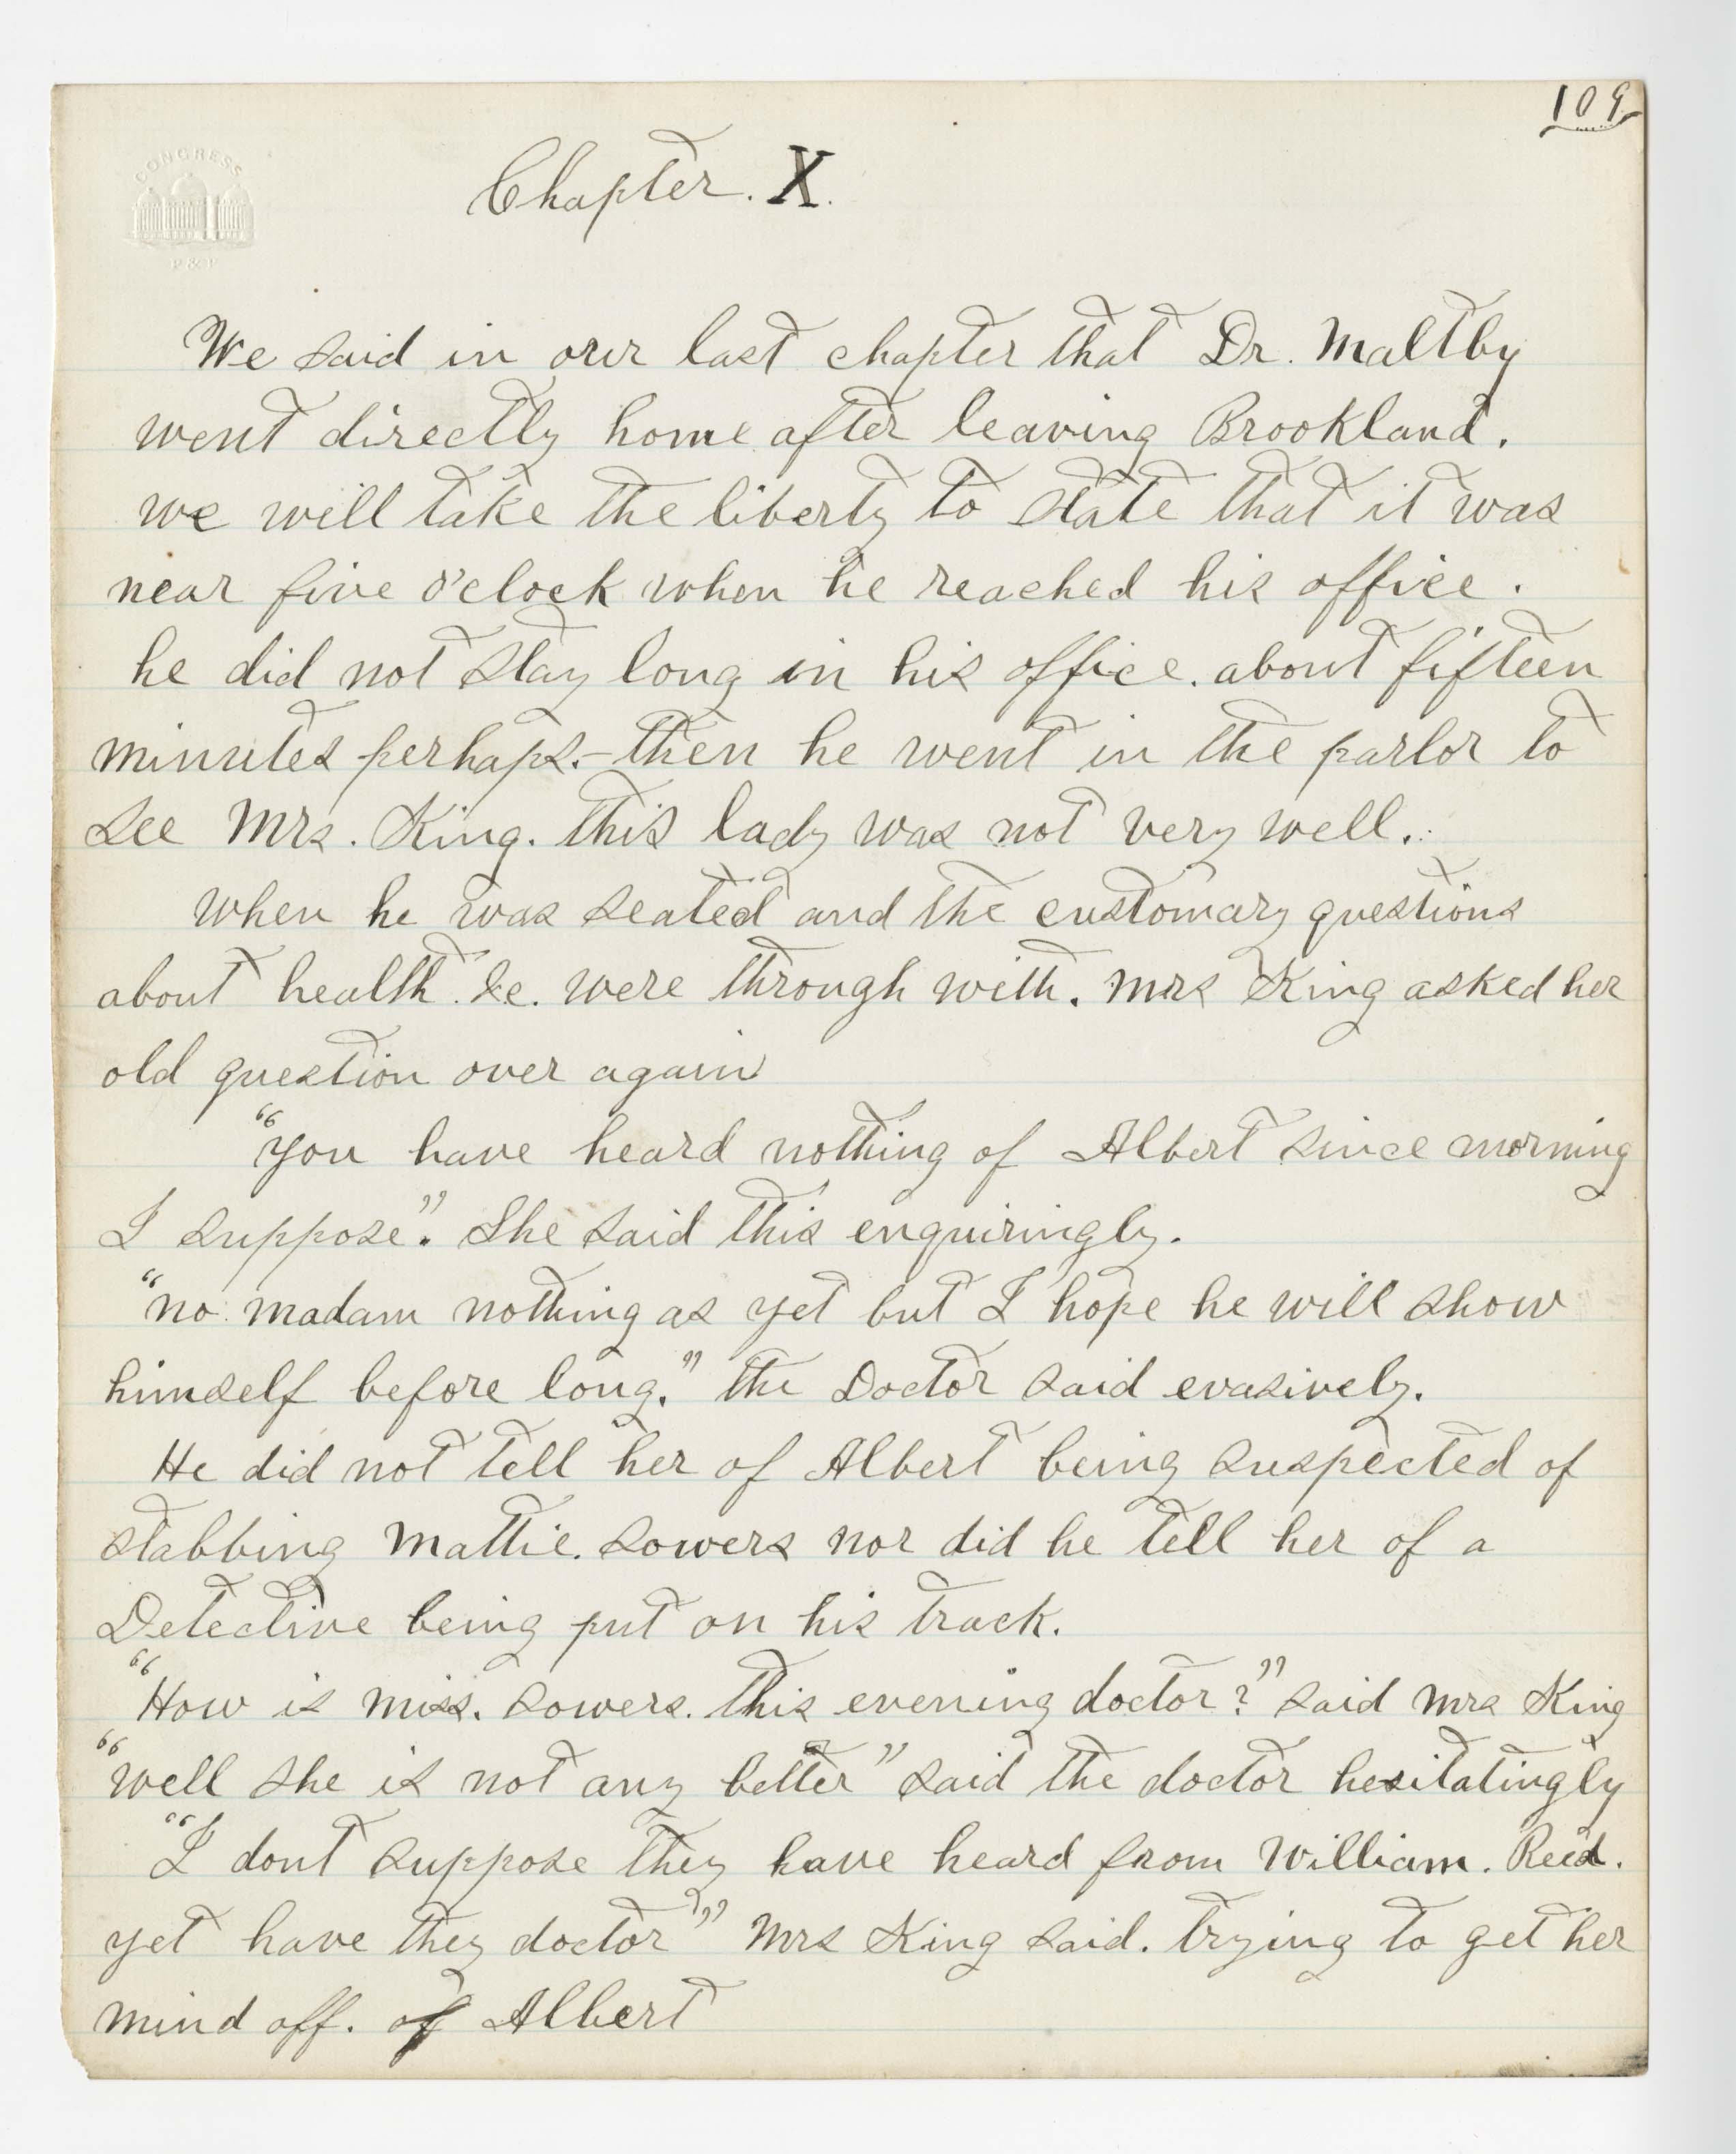 109
CONGRESS
P & P
Chapter. X.
We said in our last chapter that Dr. Maltby
went directly home after leaving Brookland.
we will take the liberty to state that it was
near five o'clock when he reached his office.
he did not stay long in his office. about fifteen
minutes perhaps.- then he went in the parlor to
see Mrs. King. this lady was not very well.
when he was seated and the customary questions
about health &c. were through with. Mrs King asked her
old question over again
"you have heard nothing of Albert since morning
I suppose". She said this enquiringly.
"no madam nothing as yet but I hope he will show
himself before long." the Doctor said evasively.
He did not tell her of Albert being suspected of
stabbing Mattie. Sowers nor did he tell her of a
Detective being put on his track.
"How is miss. Sowers. this evening doctor?" said Mrs King
"well she is not any better" said the doctor hesitatingly
"I dont suppose they have heard from William. Reid.
yet have they doctor" Mrs King said. trying to get her
mind off. of Albert